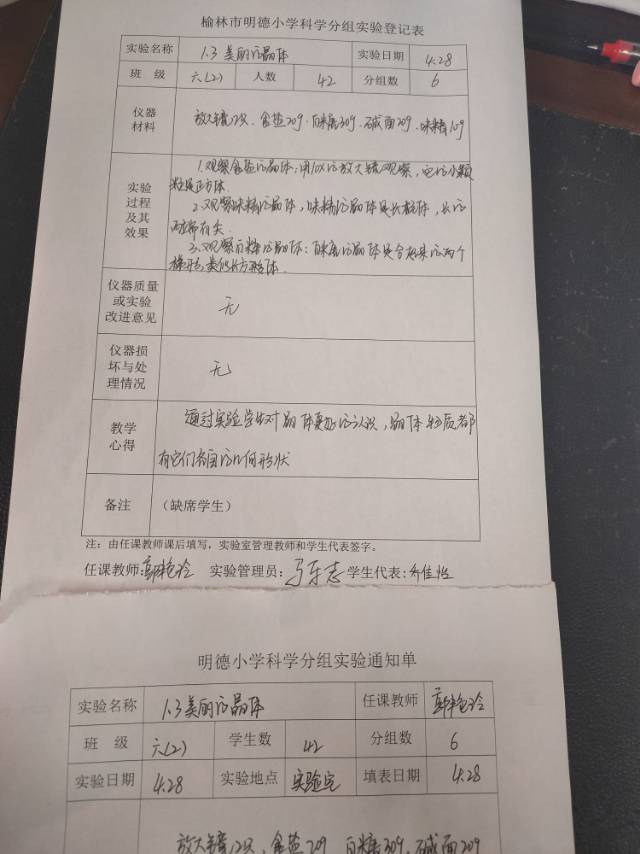 榆林市明德小学科学分组实验登记表
实验名称 1.3 美丽的晶体 实验日期 4.28
班 级 六(2) 人数 42 分组数 6
仪器材料 放大镜12只、食盐20g、白糖30g、碱面20g、味精10g
实验过程及其效果 1.观察食盐的晶体:用10X的放大镜观察,它的小颗
粒是正方体.
2.观察味精的晶体,味精的晶体是长柱体,长的
两端有尖.
3.观察白糖的晶体:白糖的晶体是合起来的两个
梯形,类似长方形体.
仪器质量或实验改进意见 无
仪器损坏与处理情况 无
教学心得 通过实验学生对晶体更好的认识,晶体物质都
有它们各自的几何形状
备注 (缺席学生)
注:由任课教师课后填写,实验室管理教师和学生代表签字。
任课教师: 实验管理员: 学生代表:乔佳怡
明德小学科学分组实验通知单
实验名称 1.3 美丽的晶体 任课教师
班 级 六(2) 学生数 42 分组数 6
实验日期 4.28 实验地点 实验室 填表日期 4.28
放大镜12只、食盐20g 白糖30g、碱面20g